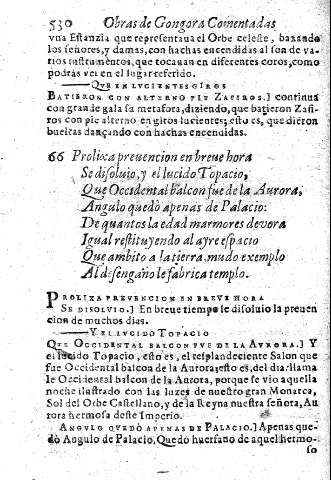 530 Obras de Gongora Comentadas
vna Estanzia que representaua el Orbe celeste, banando
los señores, y damas, con hachas encendidas al son de va-
rios instrumentos, que tocauan en diferentes coros, como
podràs ver en el lugar referido.
QVE EN LVCIENTES GIROS
BATIERON CON ALTERNO PIE ZAFIROS.] continua
con grande gala su metafora, diziendo, que batieron Zafi-
ros con pie alterno en giros lucientes; esto es, que dieron
bueltas dançando con hachas encendidas.
66 Prolixa preuencion en breue hora
Se disoluio, y el lucido Topacio,
Que Occidental balcon fue de la Aurora,
Angulo quedò apenas de Palacio:
De quantos la edad marmores deuora
Igual restituyendo al ayre espacio
Que ambito a la tierra, mudo exemplo
Al desengaño le fabrica templo.
PROLIXA PREVENCION EN BREVE HORA
SE DISOLVIO.] En breue tiempo se disoluio la preuen
cion de muchos dias.
Y EL LVCIDO TOPACIO
QVE OCCIDENTAL BALCON FVE DE LA AVRORA.] Y
el lucido Topacio, esto es, el resplandeciente Salon que
fue Occidental balcon de la Aurora; esto es, del dia: llama
le Occidental balcon de la Aurora, porque se vio aquella
noche ilustrado con las luzes de nuestro gran Monarca,
Sol del Orbe Castellano, y de la Reyna nuestra señora, Au
rora hermosa deste Imperio.
ANGVLO QVEDÒ APENAS DE PALACIO.] Apenas que-
dò Angulo de Palacio, Quedò huerfano de aquel hermo-
so